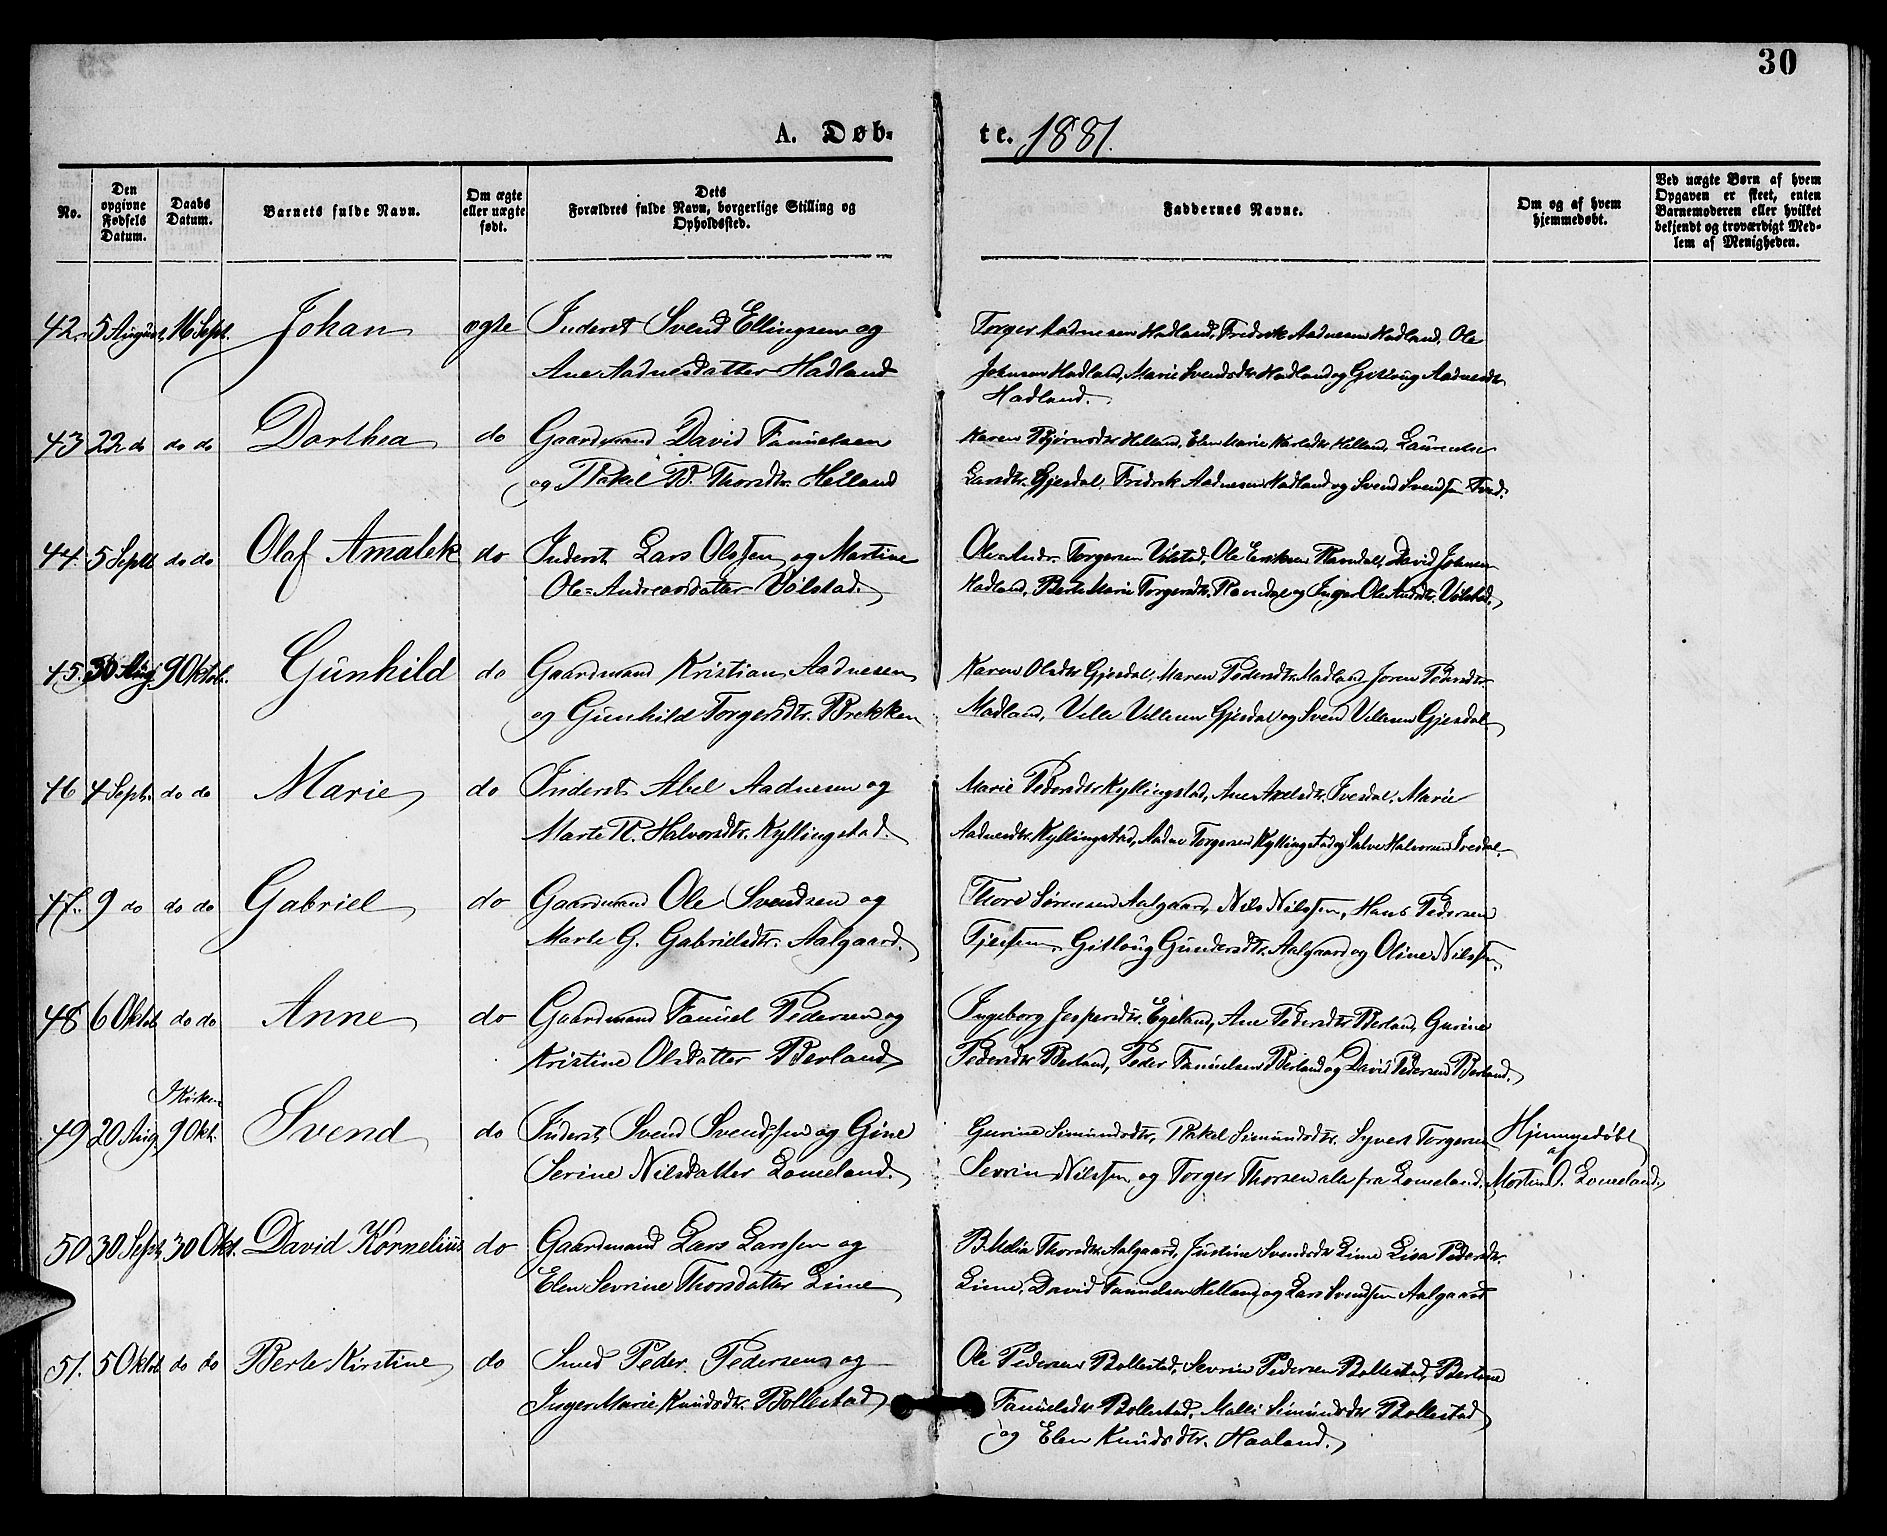 30
A. Døb- te. 1881.
No.
Den opgivne Fødsels Datum.
Daabs Datum.
Barnets fulde Navn.
Om ægte eller uægte født.
Dets Forældres fulde Navn, borgerlige Stilling og Opholdssted.
Faddernes Navne.
Om og af hvem hjemmedøbt.
Ved uægte Børn af hvem Opgaven er skeet, enten Barnemoderen eller hvilket bekjendt og troværdigt Medlem af Menigheden.
42. 5 August 16 Sept. Johan ægte Inderst Svend Ellingsen og Torger Aadnesen Hadland, Fredrik Aadnesen Hadland, Ole
Ane Aadnesdatter Hadland Johnsen Hadland, Marie Svendsdtr. Hadland og Gitlaug Aadnesdtr.
Hadland.
43 22 do do do Dorthea do Gaardmand David Tanuelsen Karen Bjørnsdtr. Helland, Elen Marie Karlsdtr. Helland, Laurentse
og Rakel B. Thorsdtr. Helland Larsdtr. Gjesdal, Fredrik Aadnesen Hadland og Svend Svendsen
44. 5 Septb do do Olaf Amalek do Inderst Lars Olsen og Martine Ole Andr. Torgersen Vølstad, Ole Eriksen Ravndal, David Johnsen
Ole-Andreasdatter Vølstad. Hadland, Berte Marie Torgersdtr. Ravndal og Inger Ole Andrdtr. Vølstad.
45. 30 Aug. 9 Oktob. Gunhild do Gaardmand Kristian Aadnesen Karen Olsdtr. Gjesdal, Maren Pedersdtr. Madland, Joren Pedersdtr.
og Gunhild Torgersdtr. Brekken Madland, Ville Villesen Gjesdal og Svend Villesen Gjesdal
46 4 Sept. do do Marie do Inderst Abel Aadnesen og Marie Pedersdtr. Kyllingstad, Ane Axelsdtr. Ivesdal, Marie
Marte R. Halvorsdtr. Kyllingstad. Aadnesdtr. Kyllingstad, Aadne Torgersen Kyllingstad og Salve Halvorsen Ivesdal.
47. 9 do do do Gabriel do Gaardmand Ole Svendsen og Thore Sørensen Aalgaard, Nils Nilssen, Hans Pedersen
Marte G. Gabrielsdtr. Aalgaard. Gitlaug Gundersdtr. Aalgaard og Oline Nilssen.
48 6 Oktob do do Anne do Gaardmand Tanuel Pedersen og Ingeborg Jespersdtr. Egeland, Ane Pedersdtr. Berland, Gurine
Kristine Olsdatter Berland Pedersdtr. Berland, Peder Tanuelsen Berland og David Pedersen Berland.
I Kirken
49 20 Aug 9 Okt. Svend do Inderst Svend Svendssen og Gine Gurine Simundsdtr., Rakel Simundsdtr. Syvert Torgersen Hjemmedøbt
af
Serine Nilsdatter Lomeland. Sevrin Nilssen og Torger Thorsen alle fra Lomeland. Morten O. Lomeland.
50 30 Sept 30 Okt. David Kornelius do Gaardmand Lars Larssen og B. Malia Thorsdtr. Aalgaard, Justine Svendsdtr. Lime Lisa Pedersdtr.
Elen Sevrine Thorsdatter Lime Lime, David Tanuelsen Helland og Lars Svendsen Aalgaard
51. 5 Oktob do do Berte Kirstine do Smed Peder Pedersen og Ole Pedersen Bollestad, Sevrin Pedersen Bollestad, Bertine
Inger Marie Knudsdtr. Bollestad Tanuelsdtr. Bollestad, Malli Simundsdtr. Bollestad
og Elen Knudsdtr. Haaland.